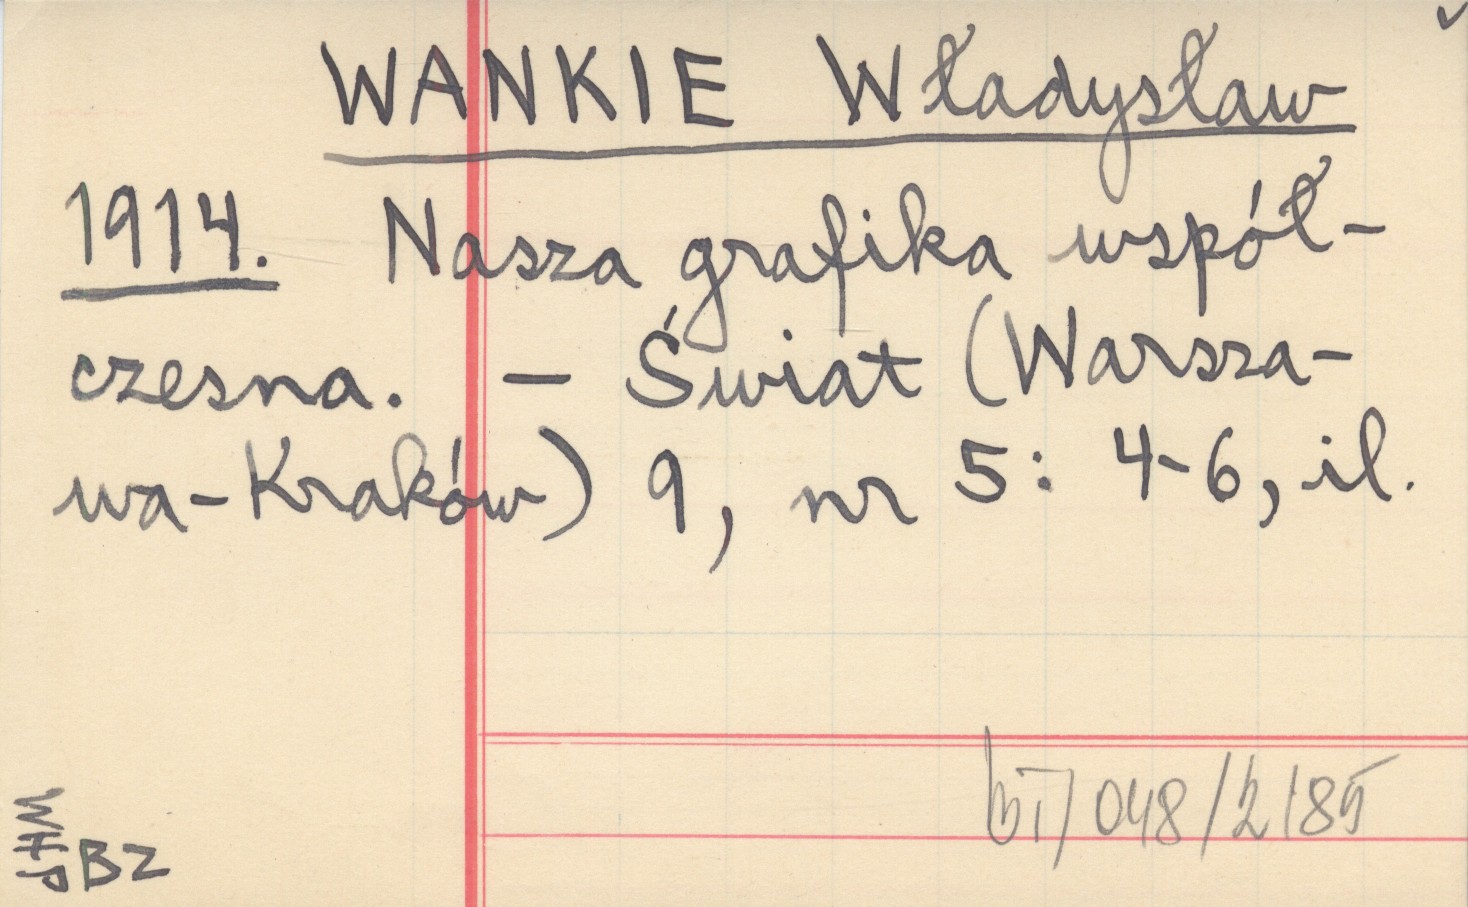 WANKIE Władysław
1914. Nasza grafika współ-
czesna. – Świat (Warsza-
wa-Kraków) 9, nr 5: 4-6, il.
BZ